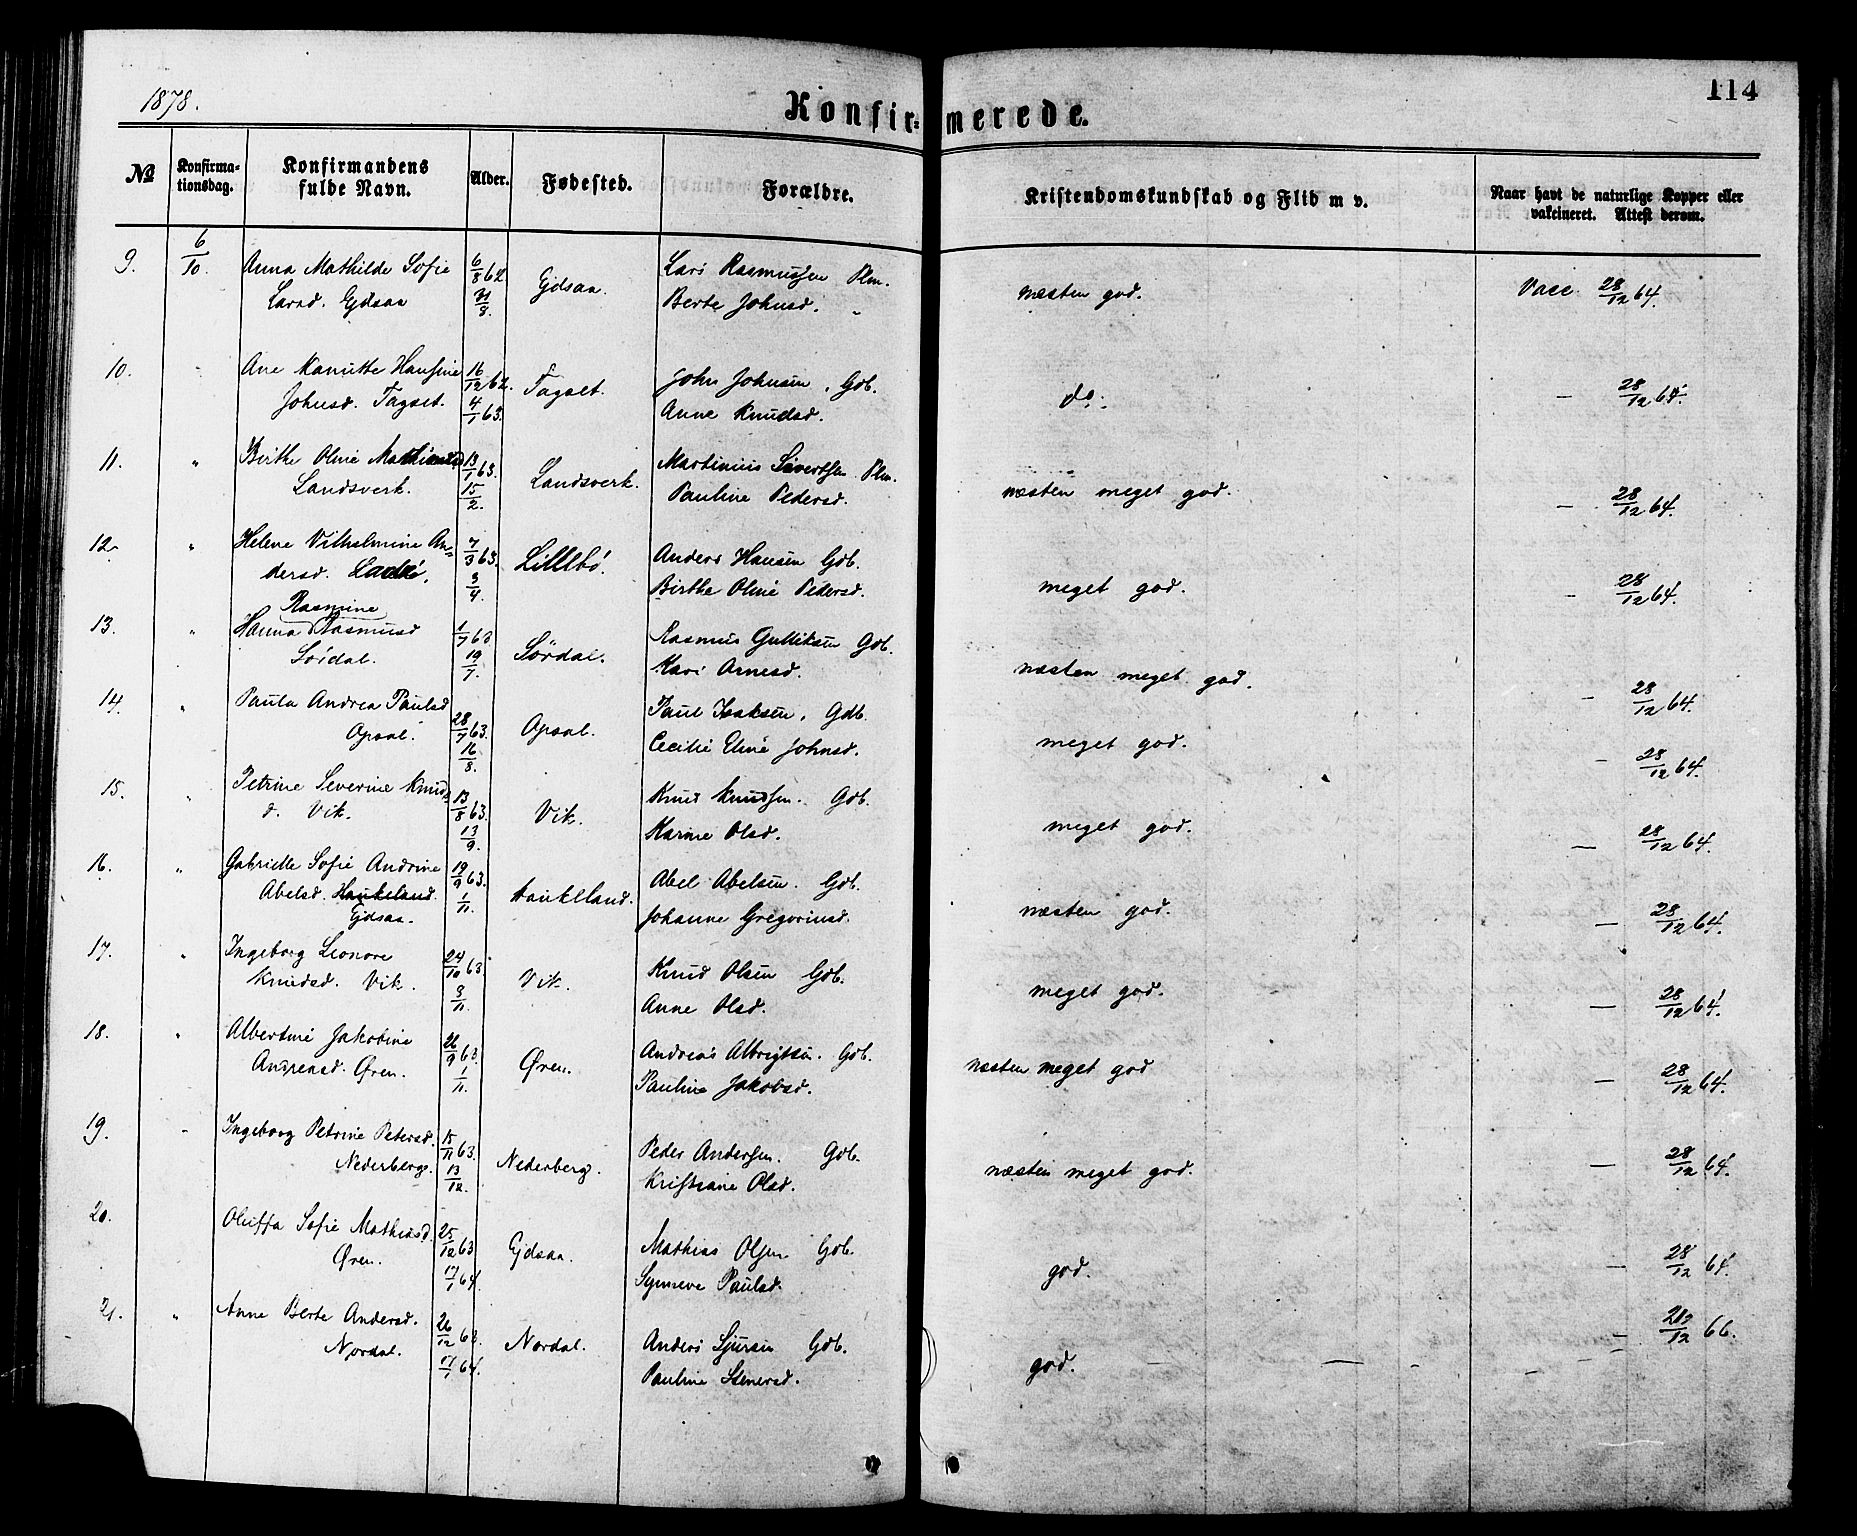 1878.
114
Konfirmerede.
№ Konfirmationsdag. Konfirmandens fulde Navn. Alder. Fødested. Forældre. Kristendomskundskab og Flid m v. Naar havt de naturlige Kopper eller vakcineret. Attest derom.
9. 6/10. Anna Mathilde Sofie 6/8 62. Gjdsaa. Lars Rasmussen Plm. næsten god. Vacc. 28/12 64.
Larsd. Gjdsaa 31/8. Berte Johnsd. "
10. " Ane Kanutte Hansine 16/12 62. Tagset. John Johnsen. Gdb. do. — 28/12 64.
Johnsd. Tagset. 4/1 63. Anne Knudsd.
11. " Birthe Oline 13/1 63. Landsverk. Martinius Sivertsen Plm. næsten meget god. — 28/12 64.
Landsverk. 15/2. Pauline Pedersd.
12. " Helene Vilhelmine An= 7/3 63. Lillebö. Anders Hansen Gdb. meget god. — 28/12 64.
dersd. 3/4. Birthe Oline Pedersd.
Rasmine
13. " Hanna Rasmusd 1/7 63 Sördal. Rasmus Gulliksen Gdb. næsten meget god. — 28/12 64.
Sördal. 19/7. Kari Arnesd.
14. " Paula Andrea Paulsd 28/7 63. Opsal. Paul Isaksen. Gdb. meget god. — 28/12 64.
Opsal. 16/8. Cecilie Eline Johnsd.
15. " Petrine Severine Knuds= 13/8 63. Vik. Knud Knudsen. Gdb. meget god. — 28/12 64.
d. Vik. 13/9. Karine Olsd.
16. " Gabrielle Sofie Andrine 19/9 63. Haukeland. Abel Abelsen. Gdb. næsten god. — 28/12 64.
Abelsd. Haukeland. 1/11. Johanne Gregoriusd.
Gjdsaa.
17. " Ingeborg Leonore 24/10 63. Vik. Knud Olsen Gdb. meget god. — 28/12 64.
Knudsd. Vik. 8/11. Anne Olsd.
18. " Albertine Jakobine 26/9 63. Øren. Andreas Albrigtsen. Gdb. næsten meget god — 28/12 64.
Andreasd. Øren. 1/11. Pauline Jakobsd.
19. " Ingeborg Petrine Petersd. 15/11 63. Nederberg. Peder Andersen. Gdb. næsten meget god. — 28/12 64.
Nederberg. 13/12. Kristiane Olsd.
20. Oluffa Sofie Mathiasd. 25/12 63 Gjdsaa. Mathias Olsen Gdb. god. — 28/12 64.
Øren. 17/1 64. Synneve Paulsd.
21. " Anne Berte Andersd. 26/12 63. Nordal. Anders Sjursen Gdb. god. — /12 66.
Nordal. 17/1 64. Pauline Stenersd.